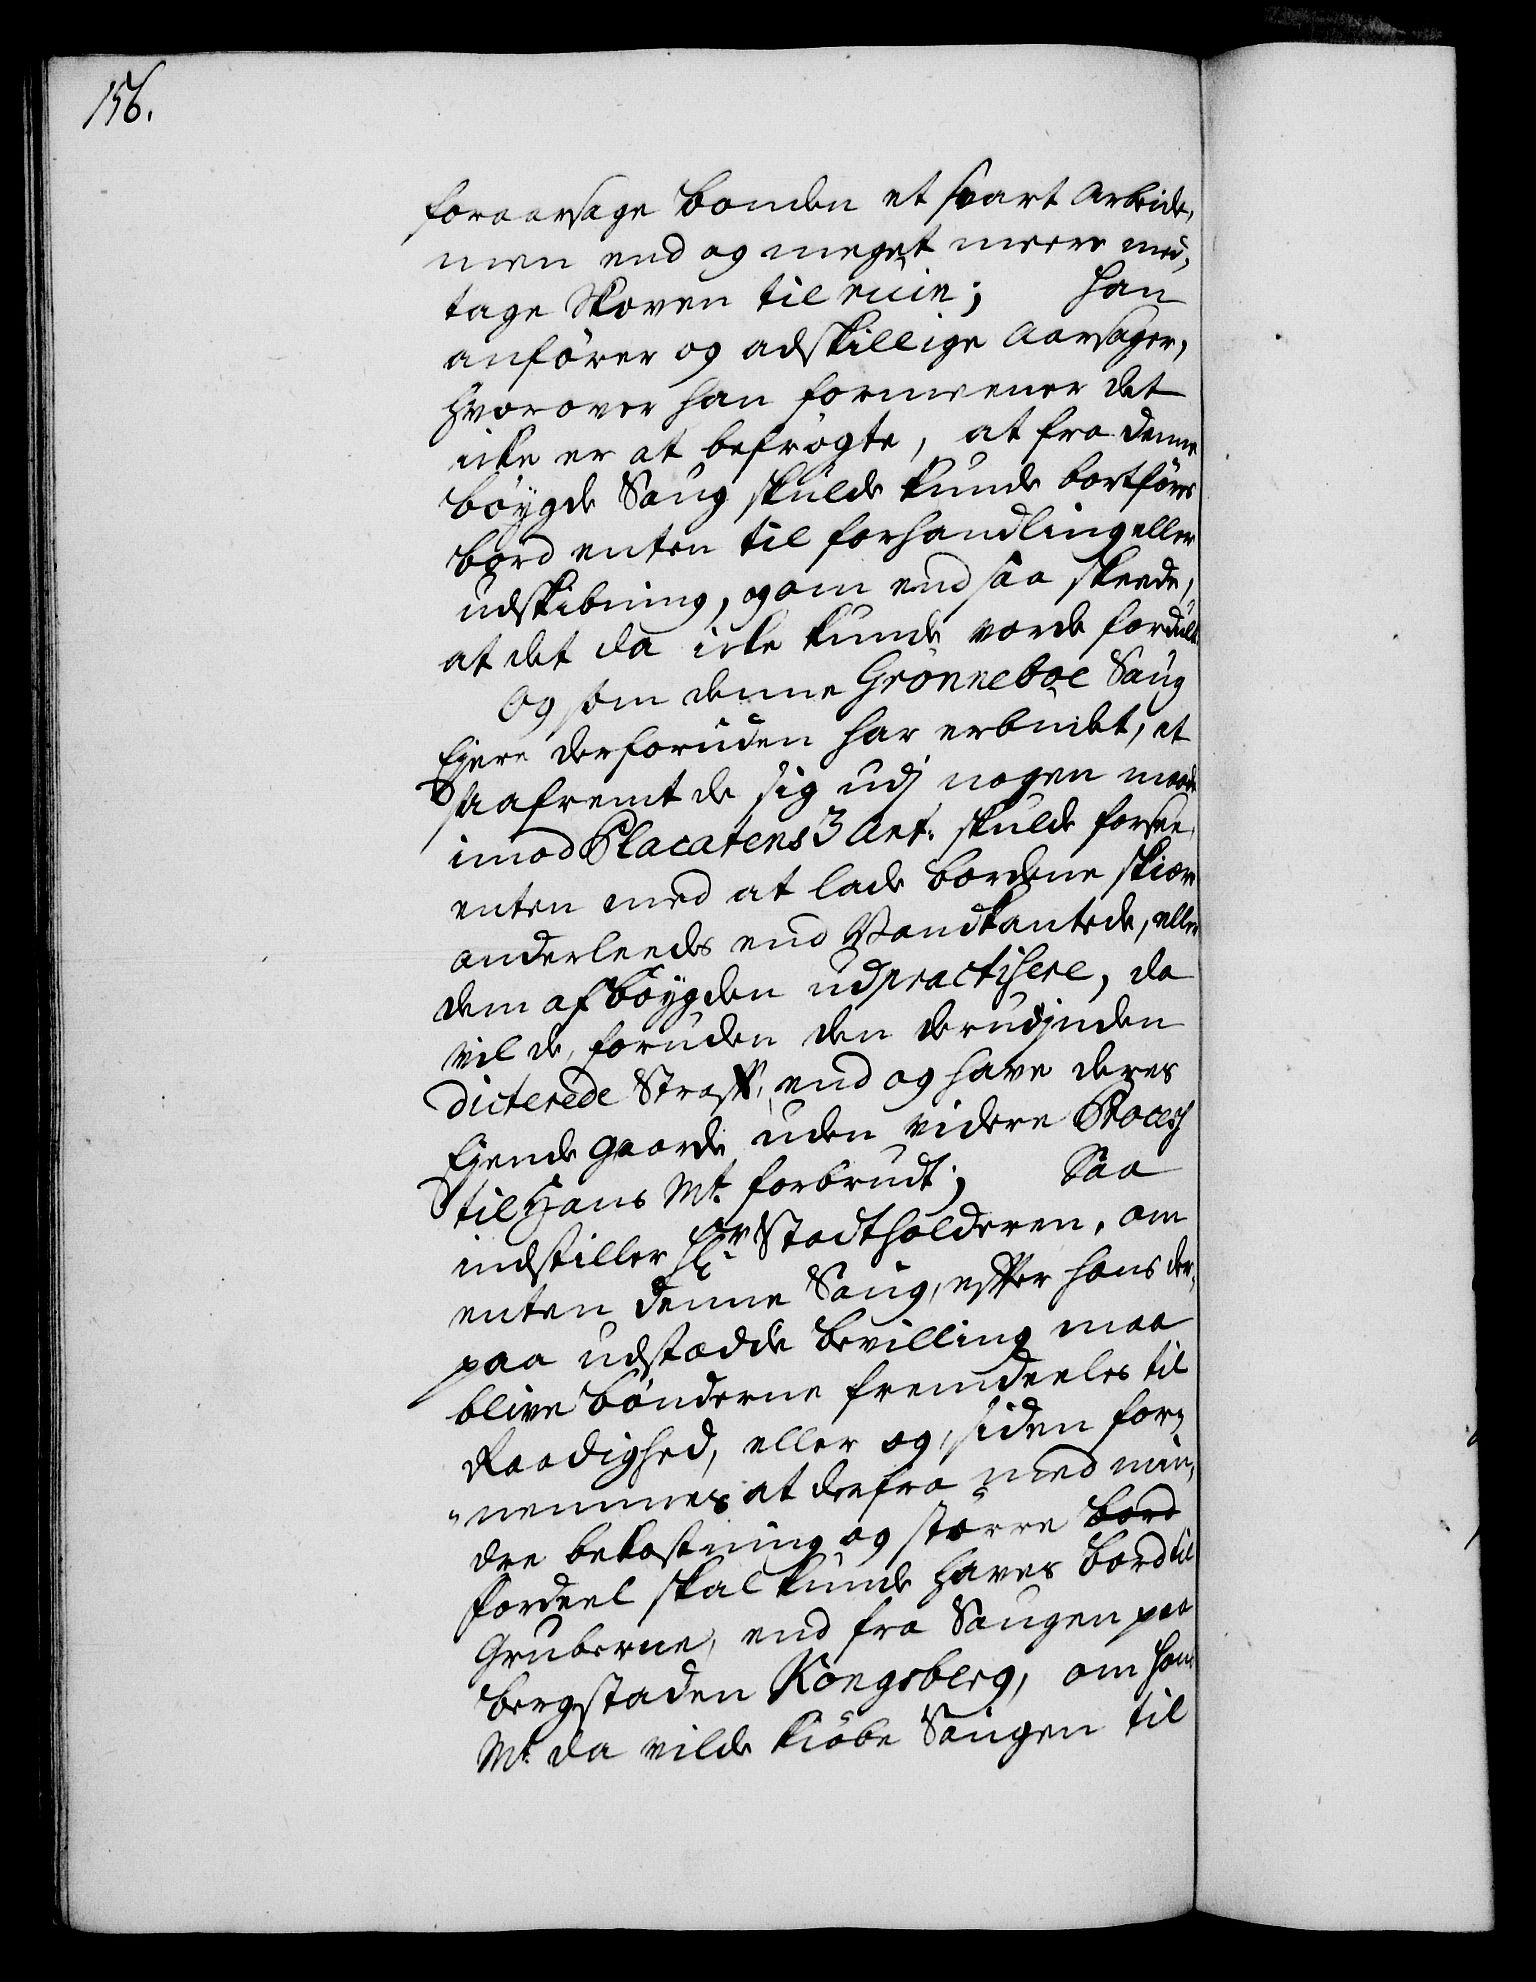 156.
foraarsage bonden et svart Arbeide,
men end og meget meere med,
tage Skoven til ruin; Han
anfører og adskillige Aarsager,
hvorover han formeener det
icke er at befrögte, at fra denne
böygde Saug skulde kunde bortföres
bord enten til forhandling eller
udskibning, og om end saa skeede,
at det da icke kunde vorde fordult
Og som denne Grönneboe Saug
Ejere derforuden har erbudet, at
saafremt de sig udj nogen maade
imod Placatens 3 Art. skulde forsee,
enten med at lade bordene skiære
anderleedes end Vandkantede, eller
dem af böygden udpractisere, da
vil de, foruden den derudjnden
dicterede Straff, end og have deres
Ejende gaarde uden videre Process
til Hans Mt. forbrudt; Saa
indstiller Hr Stadtholderen, om
enten denne Saug, efter hans der,
paa udstædde bevilling maa
blive bönderne fremdeeles til
Raadighed, eller og, siden for,
nemmes at derfra med min,
dre bekostning og större bord
fordeel skal kunde haves bord til
Gruberne, end fra Saugen paa
bergstaden Kongsberg, om Hans
Mt. da vilde kiöbe Saugen til